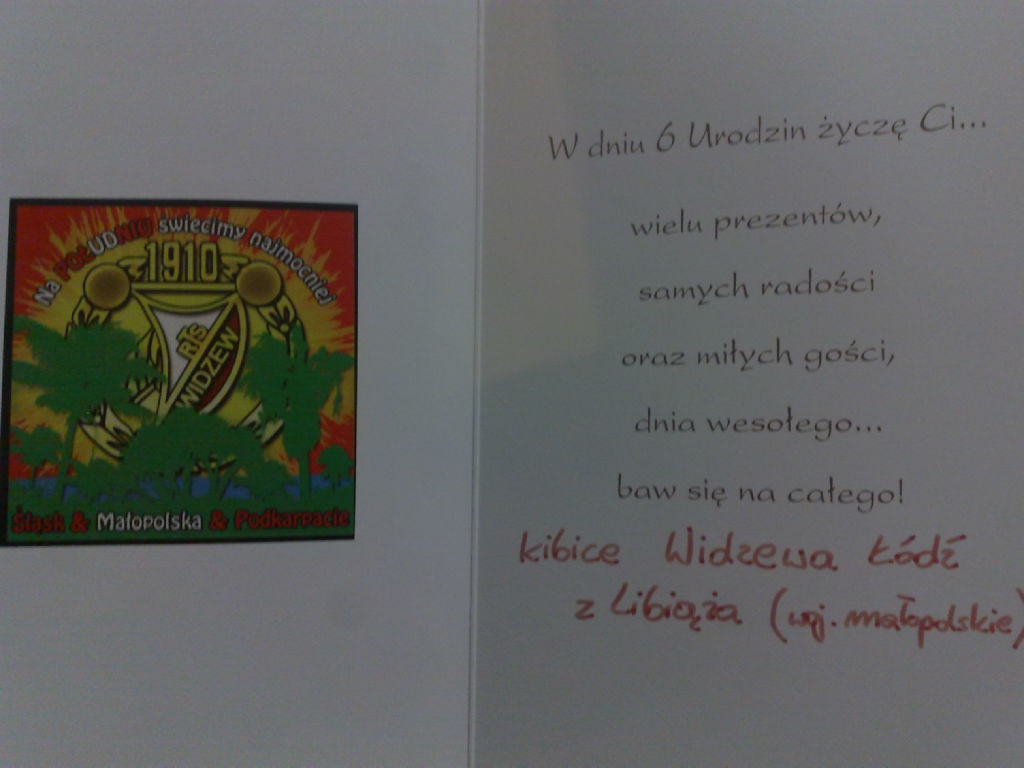 Na POŁUDNIU świecimy najmocniej
1910
RTS
WIDZEW
Śląsk & Małopolska & Podkarpacie
W dniu 6 Urodzin życzę Ci...
wielu prezentów,
samych radości
oraz miłych gości,
dnia wesołego...
baw się na całego!
kibice Widzewa Łódź
z Libiąża (woj. małopolskie)